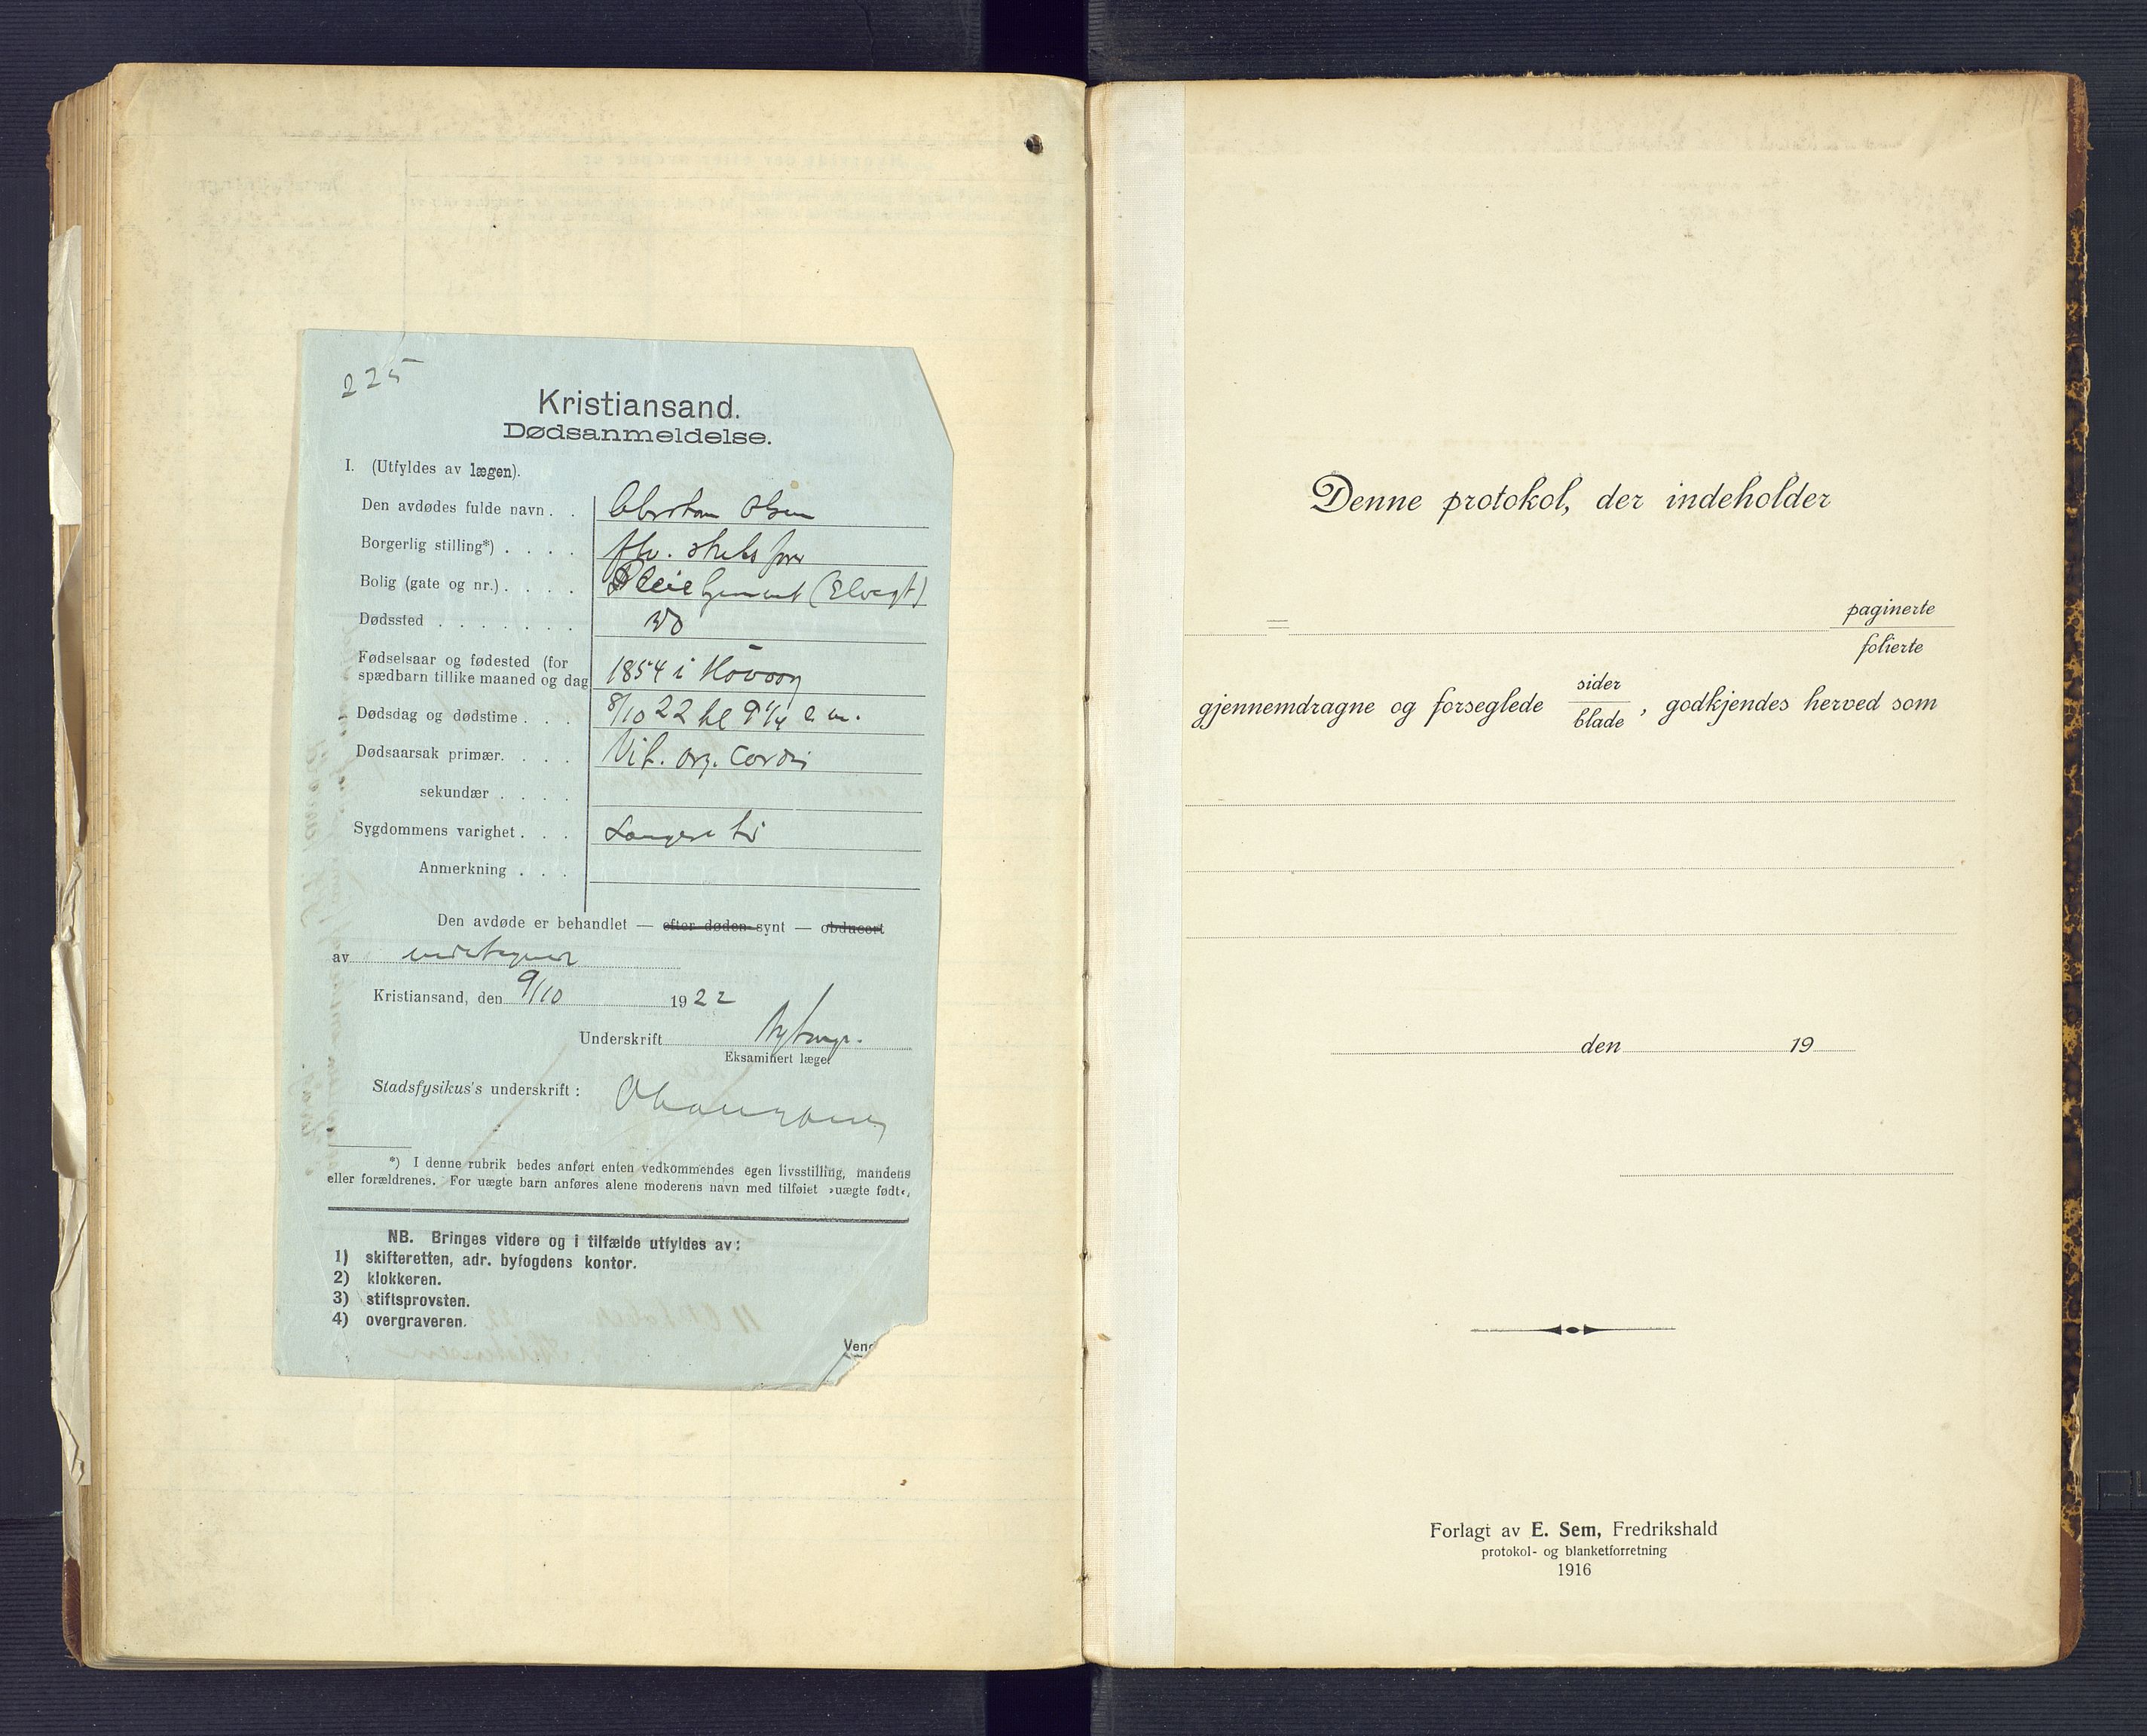 225
Kristiansand.
Dødsanmeldelse.
I. (Utfyldes av lægen).
Den avdødes fulde navn . . Abraham Olsen
Borgerlig stilling*) . . . . fhv.
Bolig (gate og nr.) . . . . Pleiehjemmet (Elvegt)
Dødssted . . . . . . . Do
Fødselsaar og fødested (for
spædbarn tillike maaned og dag 1854 i Høvaag
Dødsdag og dødstime . . . 8/10 22 kl 9 1/4 e.m.
Dødsaarsak primær. . . . Vit. org. Cordis
sekundær . . . .
Sygdommens varighet . . . Længere tid
Anmerkning . . .
Den avdøde er behandlet — efter døden synt — obducert
av undertegnede
Kristiansand, den 9/10 1922
Underskrift
Eksaminert læge.
Stadsfysikus's underskrift :
*) I denne rubrik bedes anført enten vedkommendes egen livsstilling, mandens
eller forældrenes. For uægte barn anføres alene moderens navn med tilføiet »uægte født«,
NB. Bringes videre og i tilfælde utfyldes av:
1) skifteretten, adr. byfogdens kontor.
2) klokkeren.
3) stiftsprovsten.
4) overgraveren.
Vend
Denne protokol, der indeholder
= paginerte
folierte
gjennemdragne og forseglede sider
blade , godkjendes herved som
den 19
Forlagt av E. Sem, Fredrikshald
protokol- og blanketforretning
1916